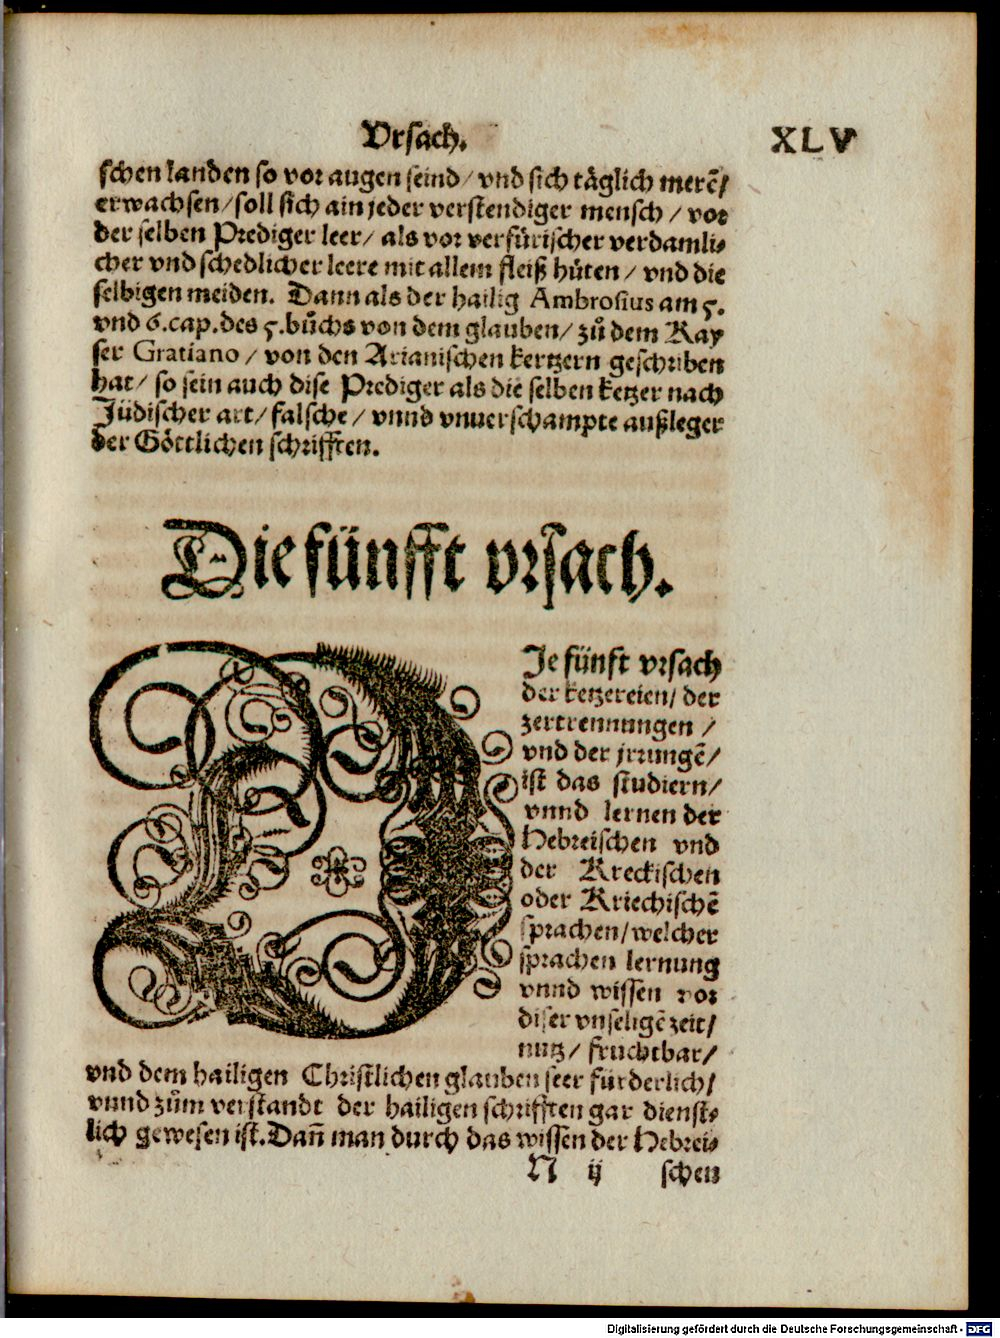 Vrsach. XLV
schen landen so vor augen seind/ vnd sich täglich merẽ/
erwachsen/ soll sich ain jeder verstendiger mensch / vor
der selben Prediger leer/ als vor verfürischer verdamli⸗
cher vnd schedlicher leere mit allem fleiß hüten/ vnd die
selbigen meiden. Dann als der hailig Ambrosius am 5.
vnd 6.cap.des 5.bůchs von dem glauben/ zů dem Kay
ser Gratiano / von den Arianischen kertzern geschriben
hat/ so sein auch dise Prediger als die selben ketzer nach
Jüdischer art/ falsche / vnnd vnuerschampte außleger
der Göttlichen schrifften.
Die fünfft vrsach.
DJe fünft vrsach
der ketzereien/ der
zertrennungen /
vnd der jrrungẽ/
ist das studiern/
vnnd lernen der
Hebreischen vnd
der Kreckischen
oder Kriechischẽ
sprachen/ welcher
sprachen lernung
vnnd wissen vor
diser vnseligẽ zeit/
nutz/ fruchtbar/
vnd dem hailigen Christlichen glauben seer fürderlich/
vnnd zům verstandt der hailigen schrifften gar dienst⸗
lich gewesen ist. Dañ man durch das wissen der Hebrei⸗
N ij schen
Digitalisierung gefördert durch die Deutsche Forschungsgemeinschaft - DFG